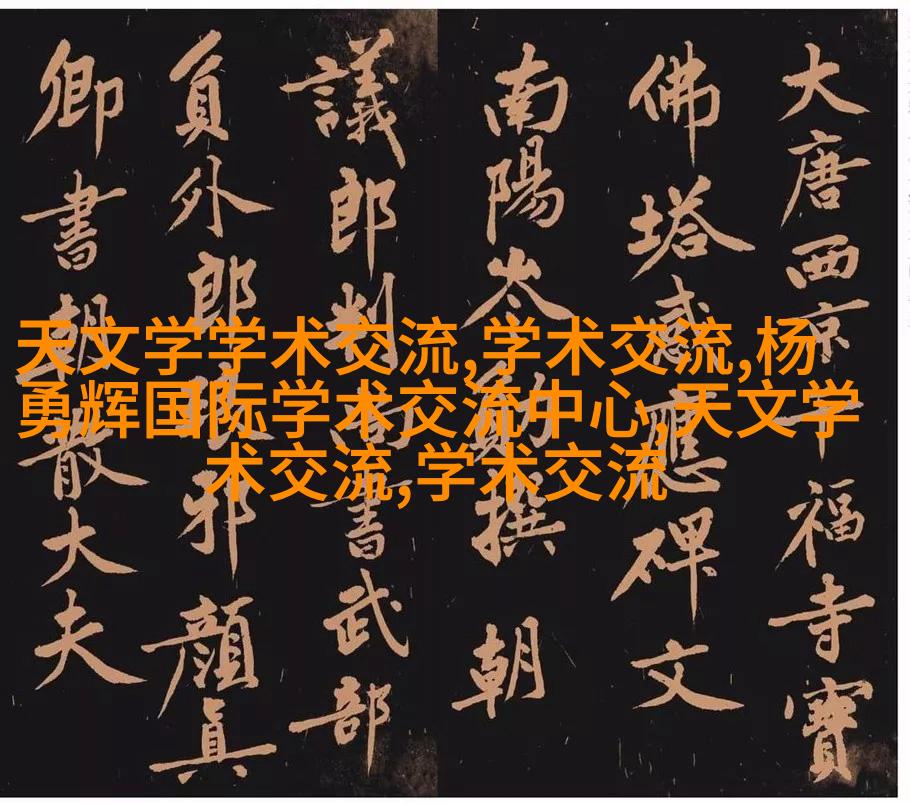 大唐西京千福寺寶
佛塔感應碑文
南陽岑勛撰 朝
議郎判尚書武部
貟外郎琅邪顏真
卿書朝散大夫
天文学学术交流,学术交流,杨
勇辉国际学术交流中心,天文学
术交流,学术交流